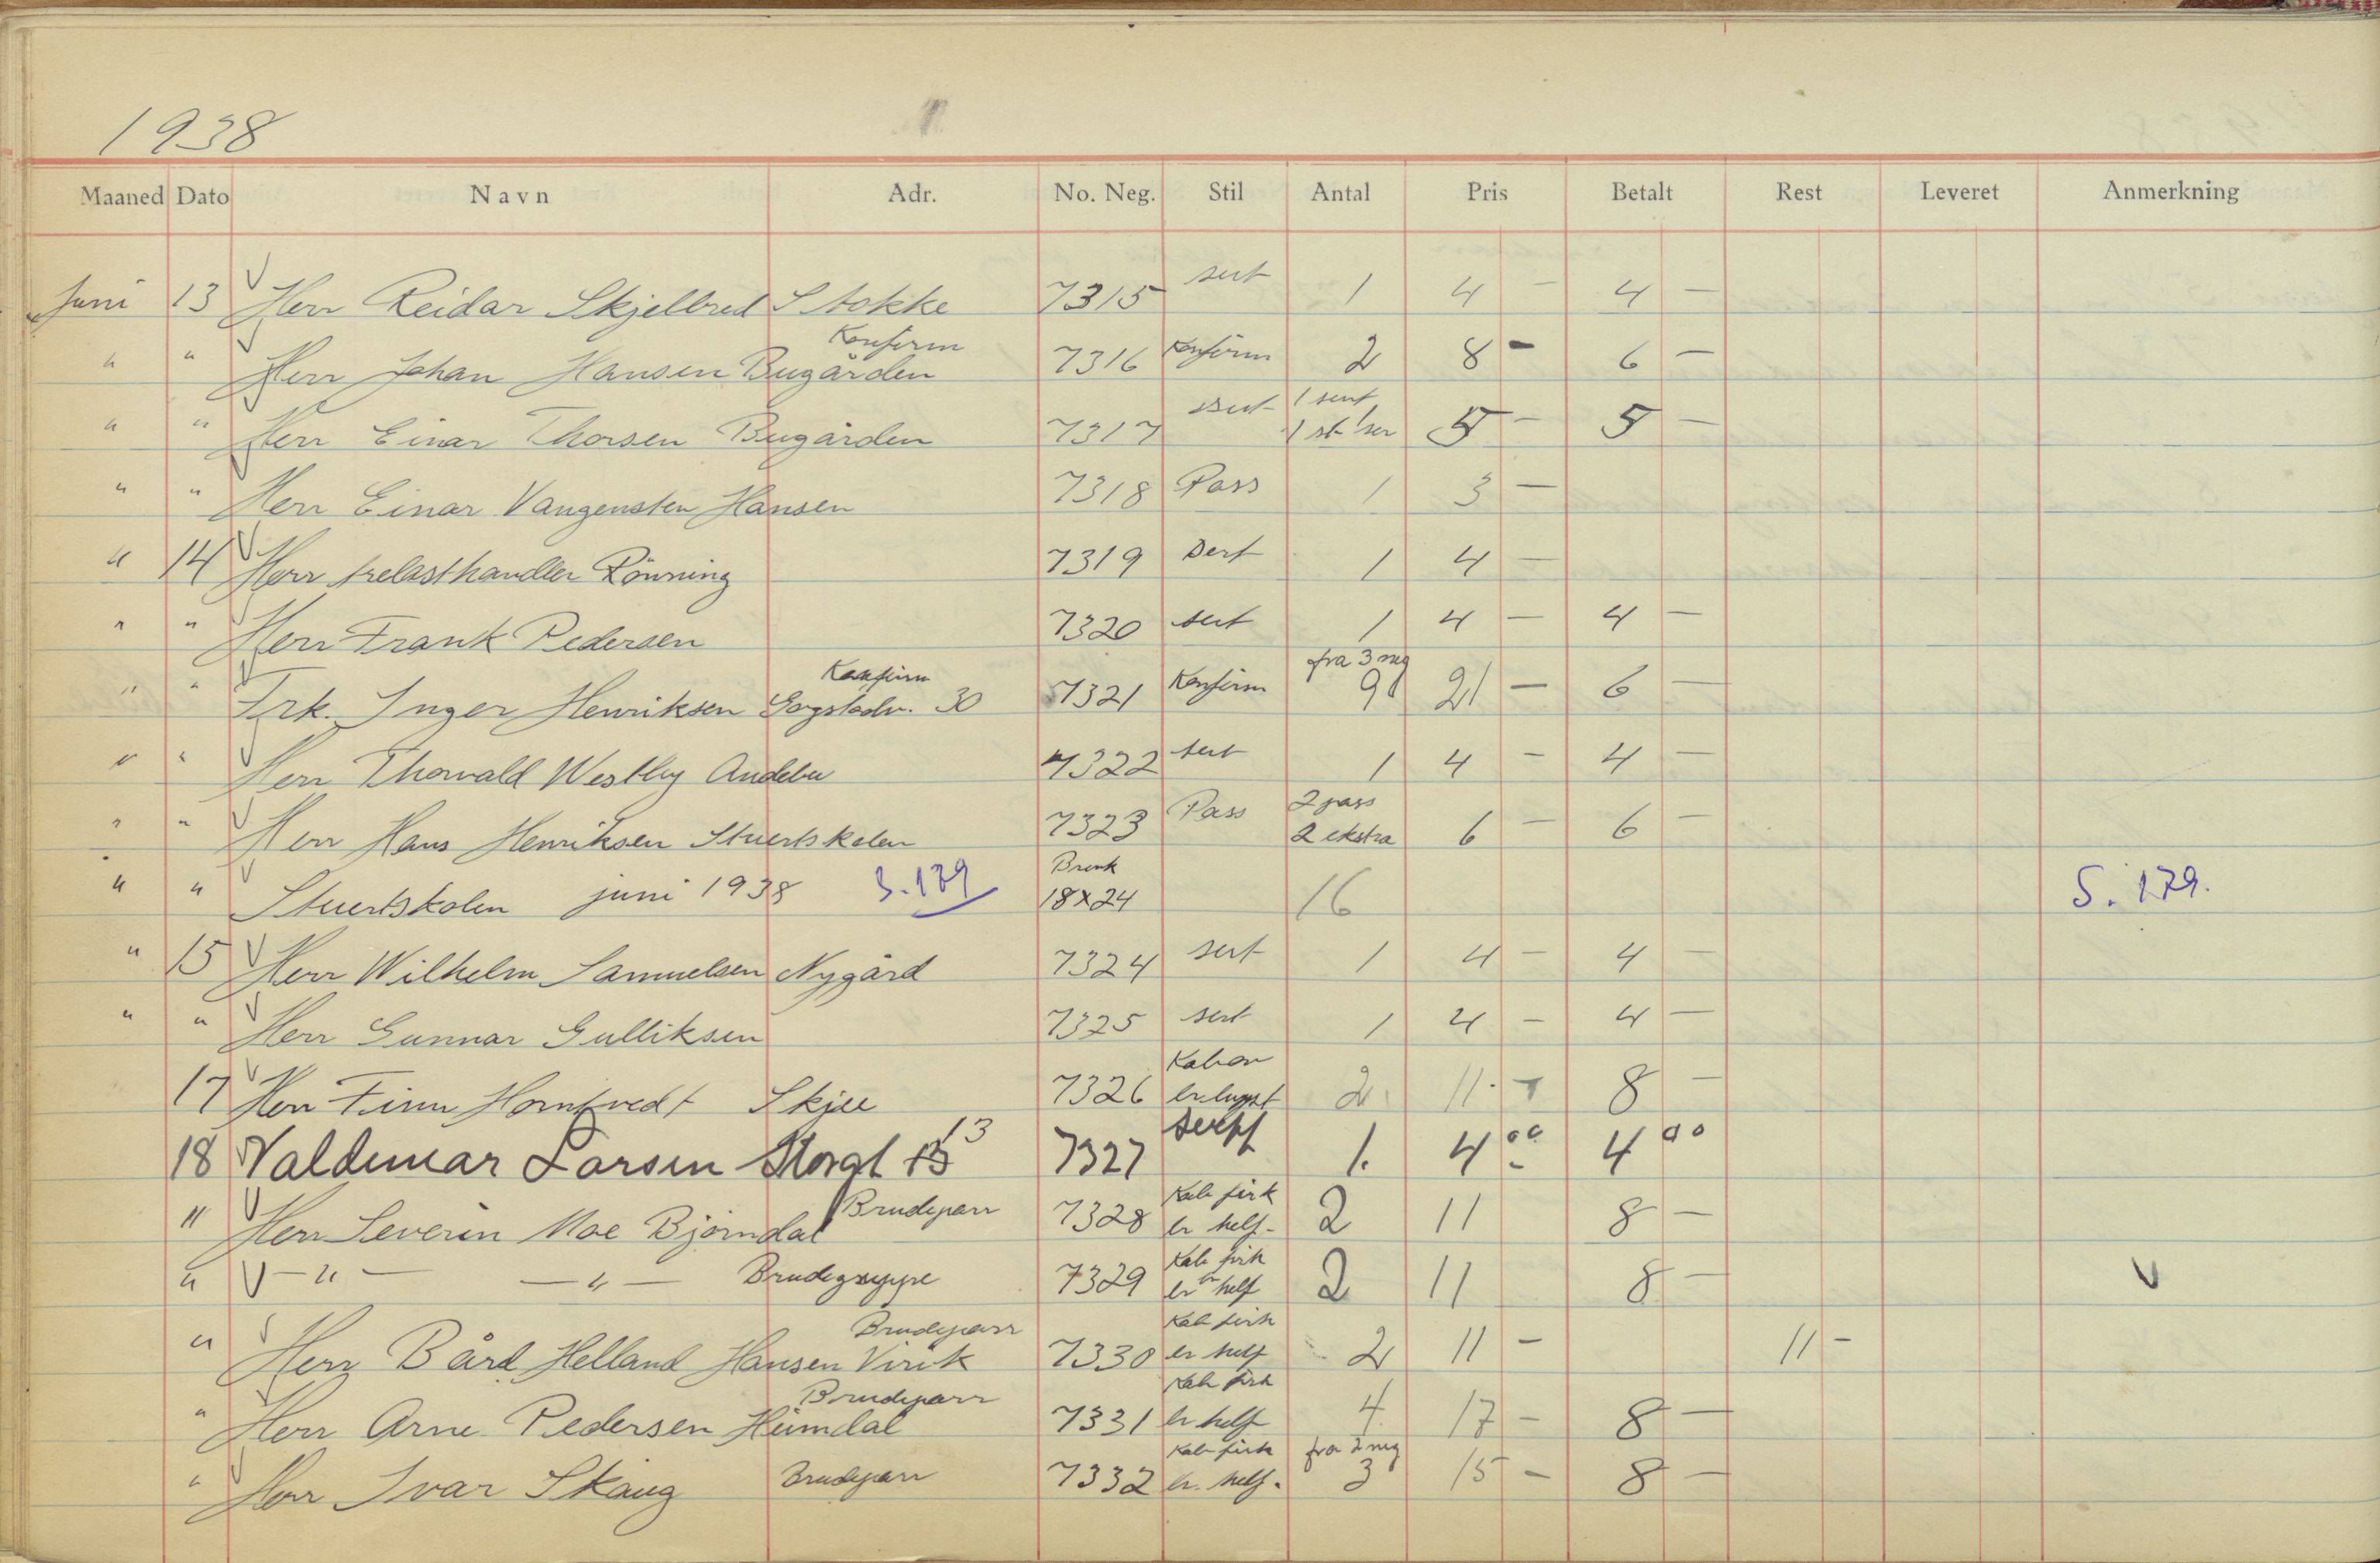 1938
Maaned Dato Navn Adr. No. Neg. Stil Antal Pris Betalt Rest Leveret Anmerkning
Juni 13 Herr Reidar Skjelbred Stokke 7315 sert 1 4 - 4 -
Konfirm
" " Herr Johan Hansen Bugården 7316 Konfirm 2 8 - 6 -
1 sert
" " Herr Einar Thorsen Bugården 7317 sert 1 st 5 - 5 -
" " Herr Einar Vangensten Hansen 7318 Pass 1 3 -
" 14 Herr trelasthandler Rönning 7319 sert 1 4 -
" " Herr Frank Pedersen 7320 sert 1 4 - 4 -
Konfirm fra 3 neg
" " Frk. Inger Henriksen 30 7321 Konfirm 9 21 - 6 -
" " Herr Thorvald Westby Andebu 7322 sert 1 4 - 4 -
2 pass
" " Herr Hans Henriksen Stuertskolen 7323 Pass 2 ekstra 6 - 6 -
" " Stuertskolen juni 1938 S. 179 18x24 16 S. 179.
" 15 Herr Wilhelm Samuelsen Nygård 7324 sert 1 4 - 4 -
" " Herr Gunnar Gulliksen 7325 sert 1 4 - 4 -
17 Herr Finn Horntvedt Skjee 7326 2 11 - 8 -
18 Valdemar Larsen Storgt 13 7327 1. 4 00 4 00
Brudeparr Kab
" Herr Severin Moe Björndal 7328 2 11 8 -
Kab
" - " - - " - Brudegruppe 7329 2 11 8 -
Brudeparr Kab
" Herr Bård Helland Hansen Virik 7330 2 11 - 11 -
Brudeparr Kab
" Herr Arne Pedersen Heimdal 7331 4 17 - 8 -
Kab fra 2 neg
" Herr Ivar Skaug Brudeparr 7332 3 15 - 8 -